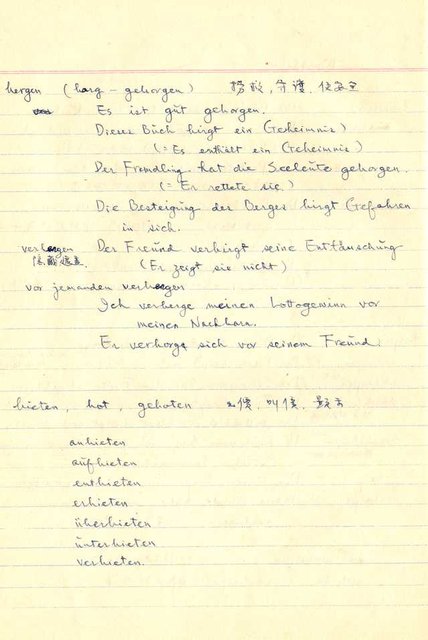 bergen (barg – geborgen) 撈救, 守護, 使安全
Es ist gut geborgen.
Dieses Buch birgt ein (Geheimnis)
(= Es enthält ein (Geheimnis)
Der Fremdling hat die Seeleute geborgen.
(= Er rettete sie.)
Die Besteigung der Berges birgt Gefahren
in sich.
verbergen Der Freund verbirgt seine Enttäuschung
(Er zeigt sie nicht)
vor jemanden verbergen
Ich verberge meinen Lottogewinn vor
meinen Nachbarn.
Er verborge sich vor seinem Freund.
bieten, bot, geboten 出價, 叫價, 顯示
anbieten
aufbieten
entbieten
erbieten
überbieten
unterbieten
verbieten.